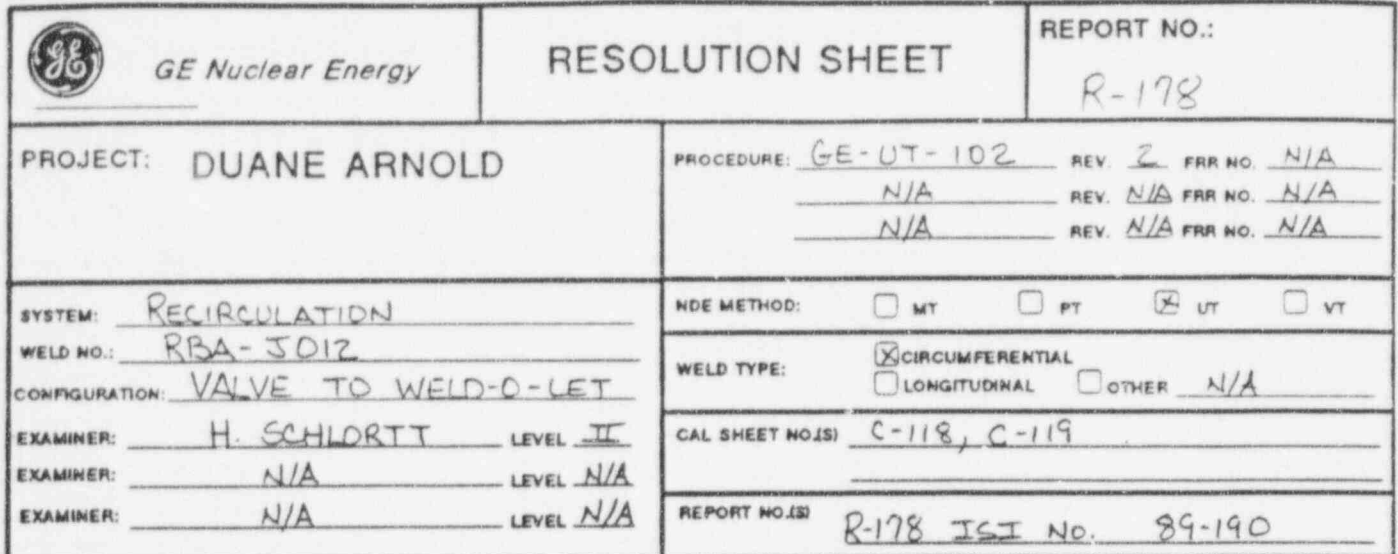 GE Nuclear Energy
RESOLUTION SHEET
REPORT NO.:
R-178
PROJECT: DUANE ARNOLD
PROCEDURE: GE-UT-102 REV. 2 FRR NO. N/A
N/A REV. N/A FRR NO. N/A
N/A REV. N/A FRR NO. N/A
SYSTEM: RECIRCULATION
WELD NO.: RBA-J012
CONFIGURATION: VALVE TO WELD-O-LET
EXAMINER: H. SCHLORTT LEVEL II
EXAMINER: N/A LEVEL N/A
EXAMINER: N/A LEVEL N/A
NDE METHOD: MT PT UT VT
WELD TYPE: CIRCUMFERENTIAL
LONGITUDINAL OTHER N/A
CAL SHEET NO.(S) C-118, C-119
REPORT NO.(S) R-178 ISI No. 89-190